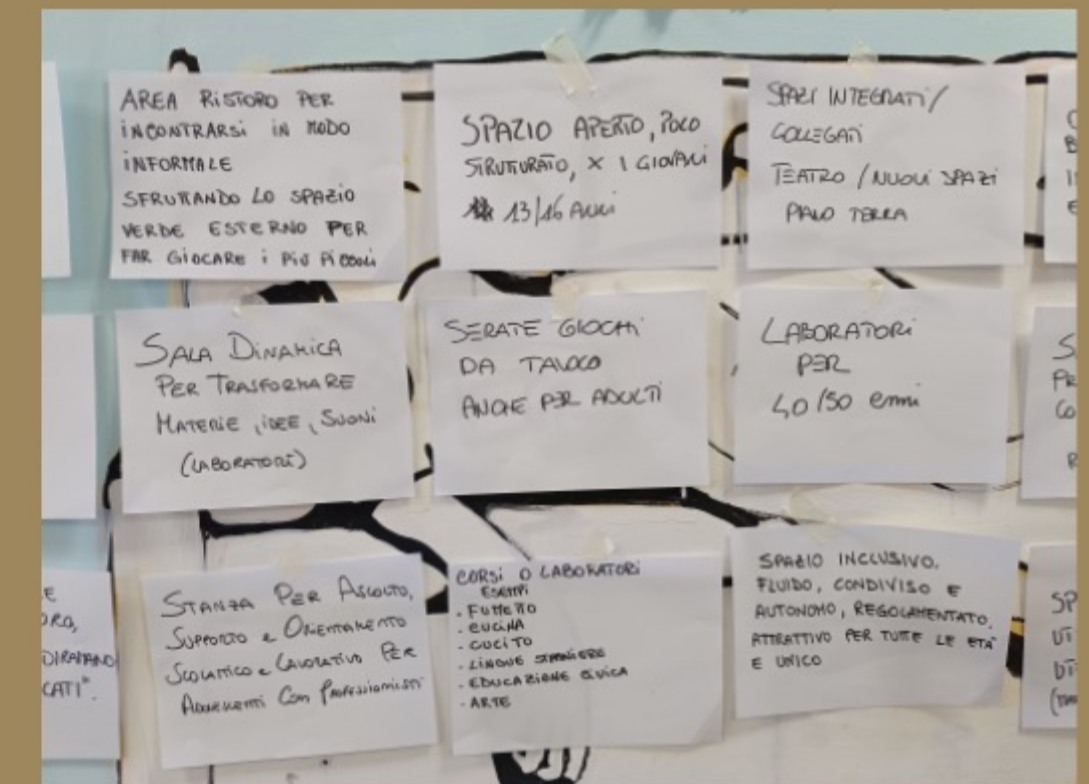 AREA RISTORO PER
INCONTRARSI IN MODO
INFORMALE
SFRUTTANDO LO SPAZIO
VERDE ESTERNO PER
FAR GIOCARE i PIÙ PICCOLI
SPAZIO APERTO, POCO
STRUTTURATO, X I GIOVANI
13/16 ANNI
SPAZI INTEGRATI/
COLLEGATI
TEATRO / NUOVI SPAZI
PIANO TERRA
SALA DINAMICA
PER TRASFORMARE
MATERIE, IDEE, SUONI
(LABORATORI)
SERATE GIOCHI
DA TAVOLO
ANCHE PER ADULTI
LABORATORI
PER
40/50 enni
STANZA PER ASCOLTO,
SUPPORTO e ORIENTAMENTO
SCOLASTICO e LAVORATIVO PER
ADOLESCENTI CON PROFESSIONISTI
CORSI O LABORATORI
ESEMPI
- FUMETTO
- CUCINA
- CUCITO
- LINGUE STRANIERE
- EDUCAZIONE CIVICA
- ARTE
SPAZIO INCLUSIVO,
FLUIDO, CONDIVISO E
AUTONOMO, REGOLAMENTATO,
ATTRATTIVO PER TUTTE LE ETÀ
E UNICO